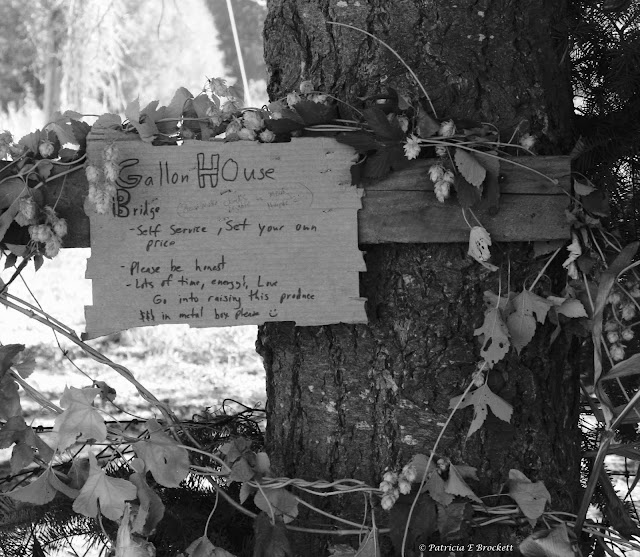 Gallon HOuse
Bridge
-Self Service, Set your own
price
-Please be honest
-Lots of time, energy, Love
Go into raising this produce
$$ in metal box please
© Patricia E Brockett